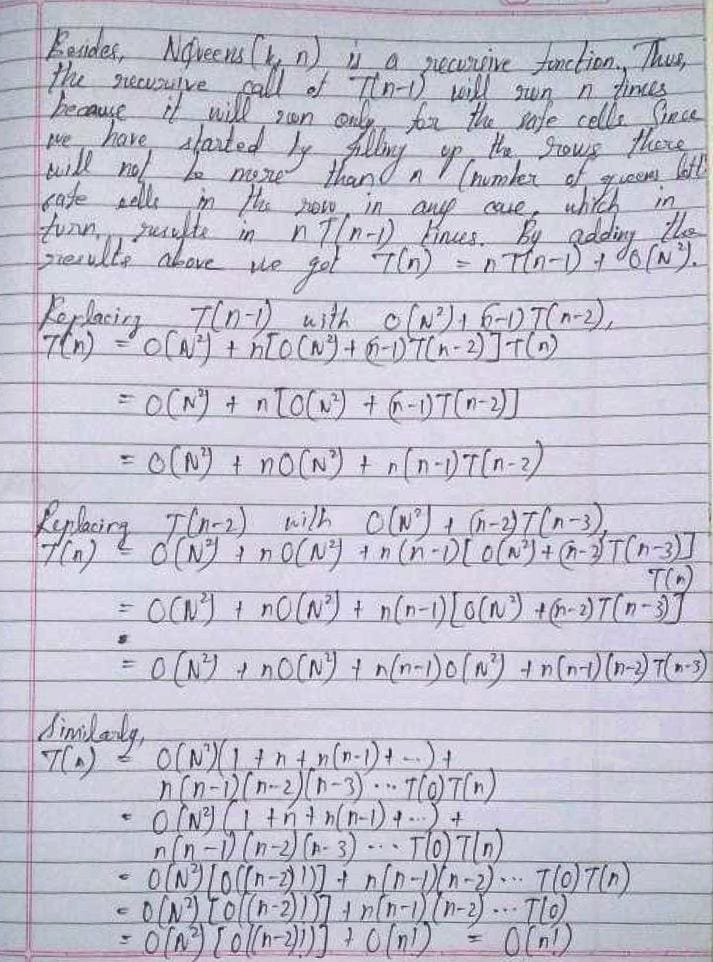 Besides, NQueens(k, n) is a recursive function. Thus,
the recursive call of T(n-1) will run n times
because it will run only for the safe cells. Since
we have started by filling up the rows there
will not be more than n (number of queens left)
safe cells in the row in any case, which in
turn, results in nT(n-1) times. By adding the
results above we get T(n) = nT(n-1) + O(N²).
Replacing T(n-1) with O(N²) + (n-1)T(n-2),
T(n) = O(N²) + n[O(N²) + (n-1)T(n-2)] T(n)
= O(N²) + n[O(N²) + (n-1)T(n-2)]
= O(N²) + nO(N²) + n(n-1)T(n-2)
Replacing T(n-2) with O(N²) + (n-2)T(n-3),
T(n) = O(N²) + nO(N²) + n(n-1)[O(N²) + (n-2)T(n-3)]
T(n)
= O(N²) + nO(N²) + n(n-1)[O(N²) + (n-2)T(n-3)]
= O(N²) + nO(N²) + n(n-1)O(N²) + n(n-1)(n-2)T(n-3)
Similarly,
T(n) = O(N²)(1 + n + n(n-1) + ...) +
n(n-1)(n-2)(n-3) ... T(0)T(n)
= O(N²)(1 + n + n(n-1) + ...) +
n(n-1)(n-2)(n-3) ... T(0)T(n)
= O(N²)[O((n-2)!)] + n(n-1)(n-2) ... T(0)T(n)
= O(N²)[O((n-2)!)] + n(n-1)(n-2) ... T(0)
= O(N²)[O((n-2)!)] + O(n!) = O(n!)